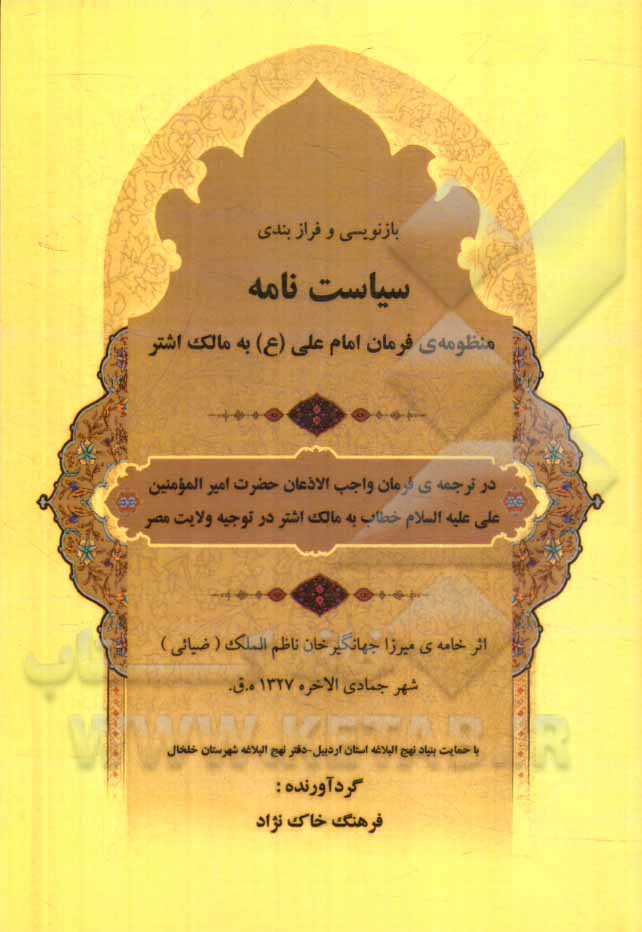 بازنویسی و فراز بندی
سیاست نامه
منظومه‌ی فرمان امام علی (ع) به مالک اشتر
در ترجمه ی فرمان واجب الاذعان حضرت امیر المؤمنین
علی علیه السلام خطاب به مالک اشتر در توجیه ولایت مصر
اثر خامه ی میرزا جهانگیرخان ناظم الملک ( ضیائی )
شهر جمادی الاخره ۱۳۲۷ ه.ق.
WWW.KETAB.IR
با حمایت بنیاد نهج البلاغه استان اردبیل-دفتر نهج البلاغه شهرستان خلخال
گردآورنده :
فرهنگ خاک نژاد